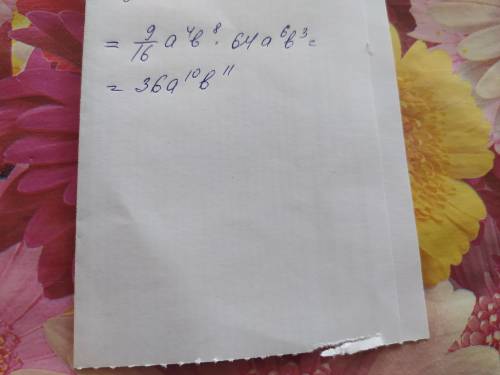 = 9/16 a⁴b⁸ · 64a⁶b³ =
= 36a¹⁰b¹¹